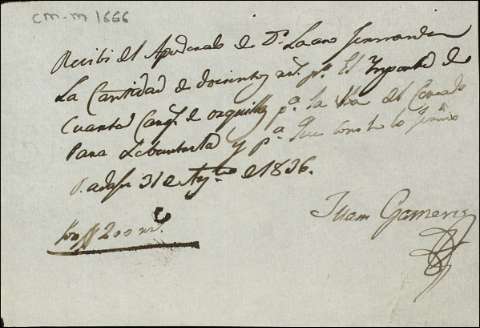 CM-M 1666
Recibí del Apoderado de Dn. Lazaro Fernandez
La Cantidad de docientos rs. pr. El Importe de
Cuatro Cargs. de orquillas pa. la de el Cercado
Para Lebantarla y pa. que conste lo firmo
31 de Agto. de 1836.
Juan Gamero
Son 200 rs.